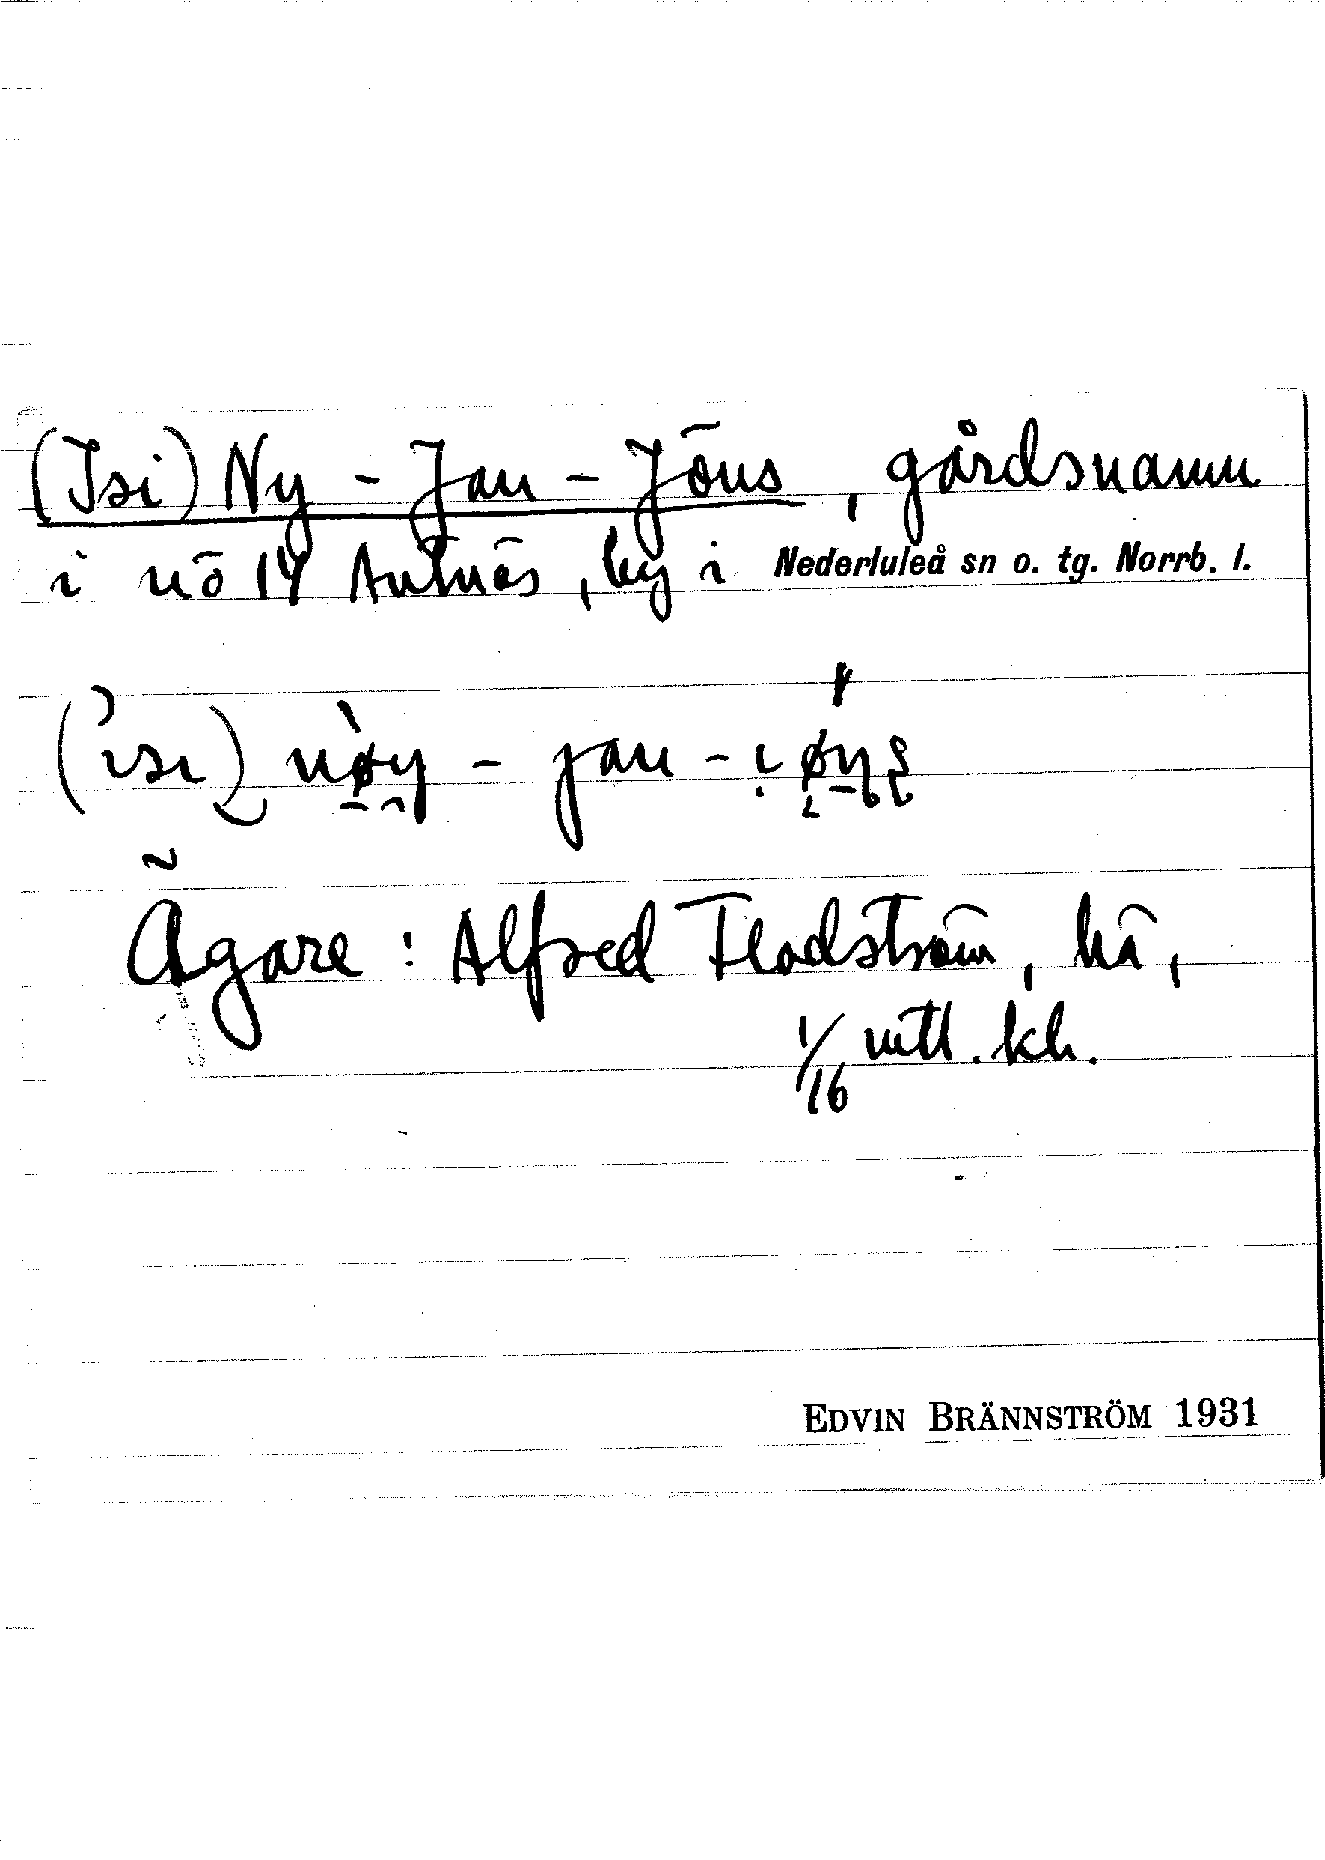 (Isi) Ny - Jan - Jöns, gårdsnamn
i nö 14 Antnäs, by i Nederluleå sn o. tg. Norrb. l.
Ägare: Alfred Flodström, hä,
1/16 mtl. kh.
EDVIN BRÄNNSTRÖM 1931